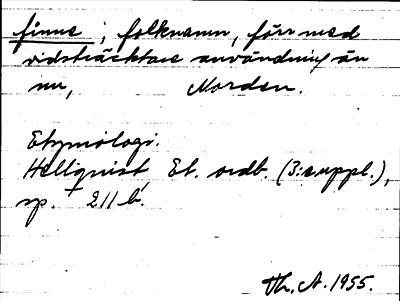 finne; folknamn, förr med
vidsträcktare användning än
nu, Norden.
Etymologi.
Hellquist Et. ordb. (3:e uppl.),
sp. 211 b.
Th. A. 1955.